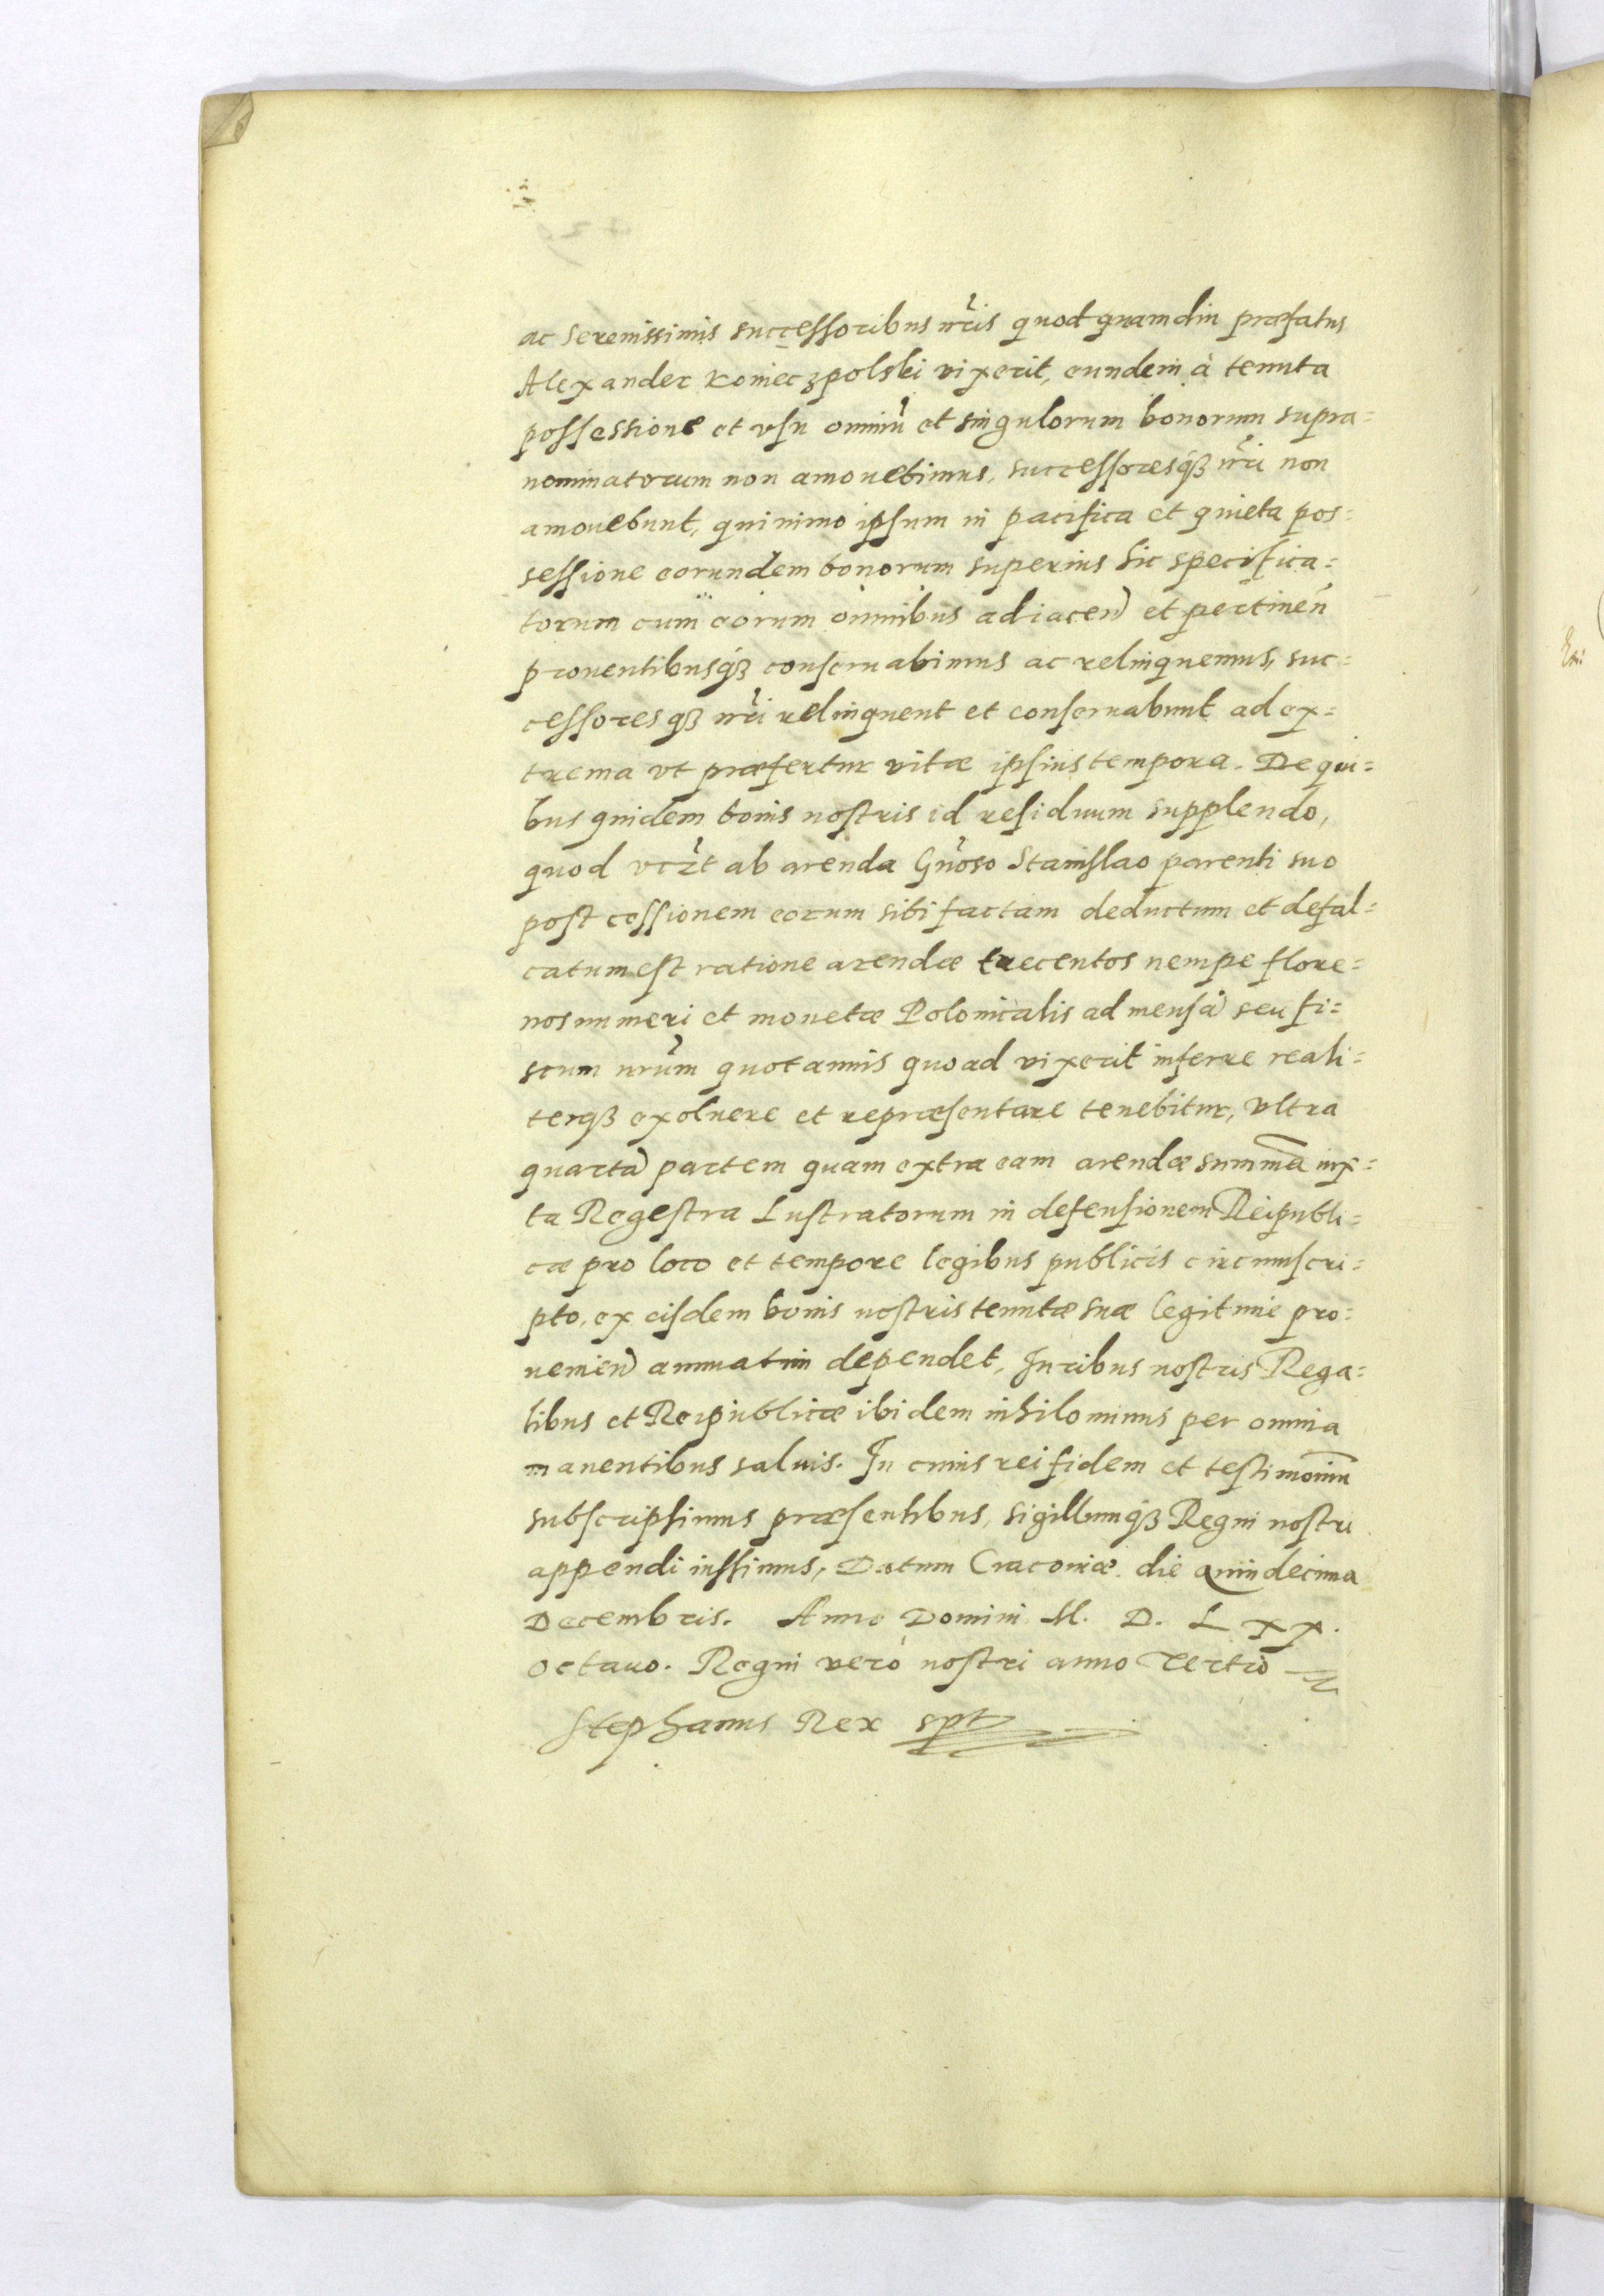 ac Serenissimis successoribus nr̃is quod quamdiu præfatus
Alexander Konieczpolski vixerit, eundem à tenuta
possessione et vsu omniũ et singulorum bonorum supra=
nominatorum non amouebimus, successoresqȝ nr̃i non
amouebunt, quinimo ipsum in pacifica et quieta pos=
sessione eorundem bonorum superius sic specifica=
torum cum eorum omnibus adiaceñ et pertineñ
prouentibusqȝ conseruabimus ac relinquemus, suc=
cessoresqȝ nr̃i relinquent et conseruabunt ad ex=
trema vt præfertur vitæ ipsius tempora. De qui=
bus quidem bonis nostris id residuum supplendo,
quod vcz̃t ab arenda Gñoso Stanislao parenti suo
post cessionem eorum sibi factam deductum et defal=
catum est ratione arendæ trecentos nempe flore=
nos numeri et monetæ Polonicalis ad mensã seu fi=
scum nrũm quotannis quoad vixerit inferre reali=
terqȝ exoluere et repræsentare tenebitur, vltra
quartã partem quam extra eam arendæ summã iux=
ta Regestra Lustratorum in defensionem Reipubli=
cæ pro loco et tempore legibus publicis circumscri=
pto, ex eisdem bonis nostris tenutæ suæ legitime pro=
ueniẽn annuatim dependet, Iuribus nostris Rega=
libus et Reipublicæ ibidem nihilominus per omnia
manentibus saluis. In cuius rei fidem et testimoniũ
subscripsimus præsentibus, sigillumqȝ Regni nostri
appendi iussimus, Datum Cracoviæ die quindecima
Decembris. Anno Domini M. D. L x x.
octauo. Regni verò nostri anno Tertio
Stephanus Rex spt